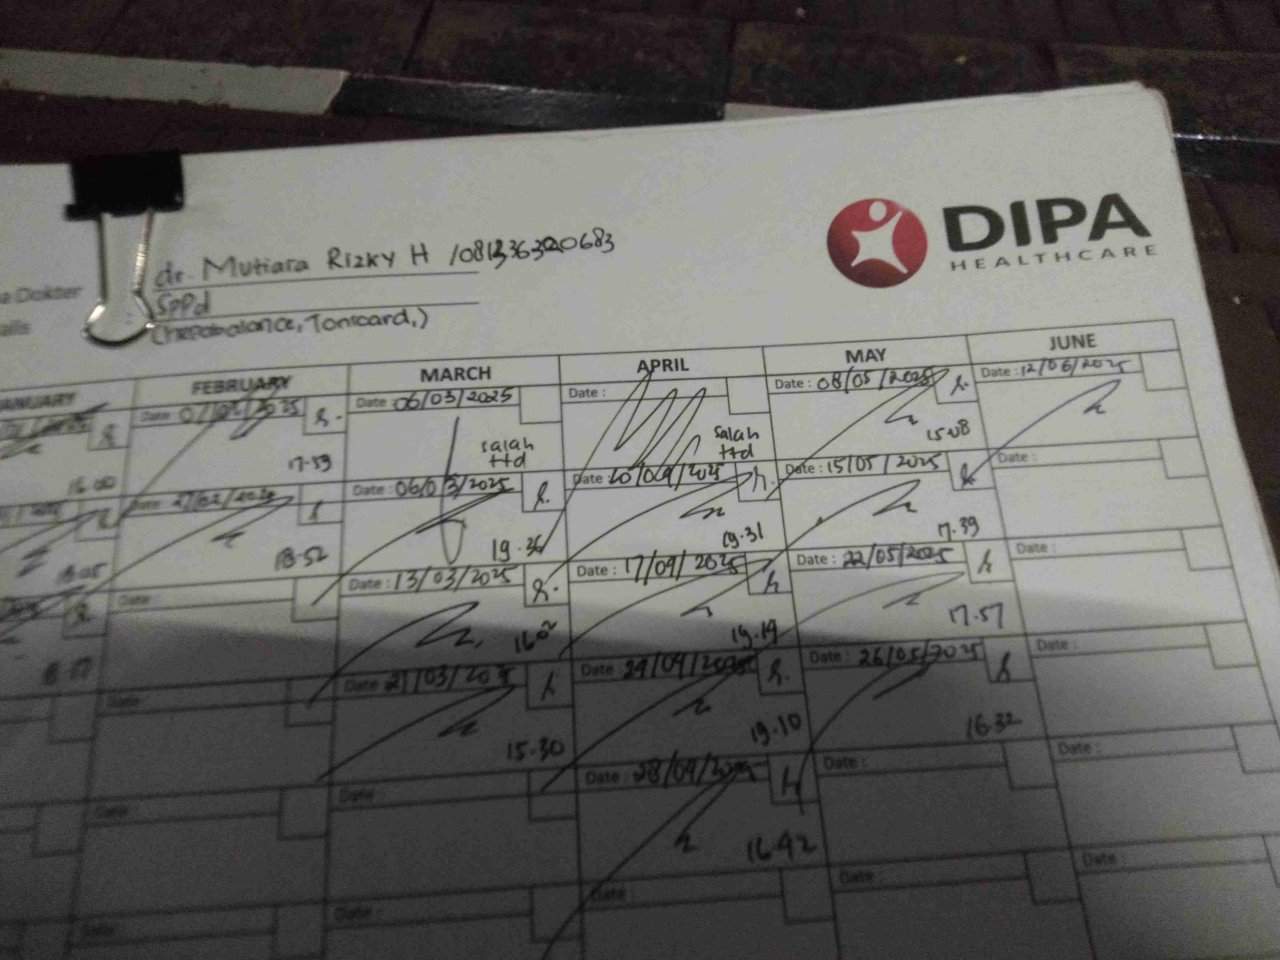 DIPA
HEALTHCARE
dr. Mutiara Rizky H /081336320683
a Dokter
SpPd
ails
(Hepabalance, Tonicard,)
ANUARY FEBRUARY MARCH APRIL MAY JUNE
Date : Date : 06/03/2025 Date : Date : 08/05/2025 Date : 12/06/2025
16.00 17.53 salah ttd salah ttd 15.08
Date : 27/02/2025 Date : 06/03/2025 Date : 10/04/2025 Date : 15/05/2025 Date :
18.05 18.52 19.36 19.31 17.39
Date : Date : 13/03/2025 Date : 17/04/2025 Date : 22/05/2025 Date :
16.02 19.19 17.57
Date : Date : 21/03/2025 Date : 24/04/2025 Date : 26/05/2025 Date :
15.30 19.10 16.32
Date : Date : Date : 28/04/2025 Date : Date :
16.42
Date : Date : Date : Date : Date :